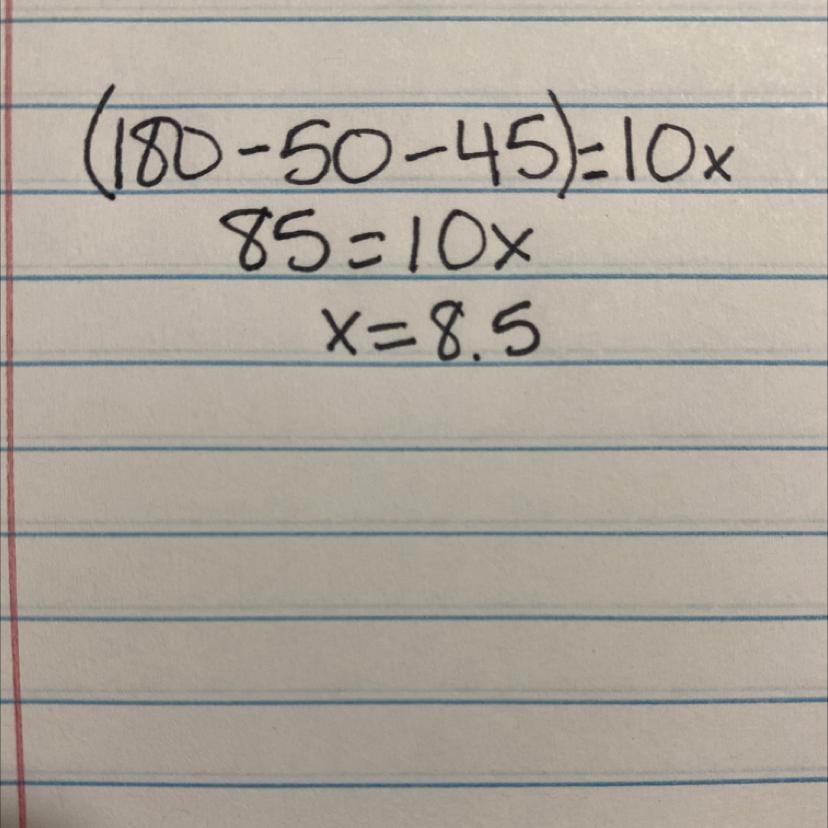 (180-50-45)=10x
85=10x
x=8.5